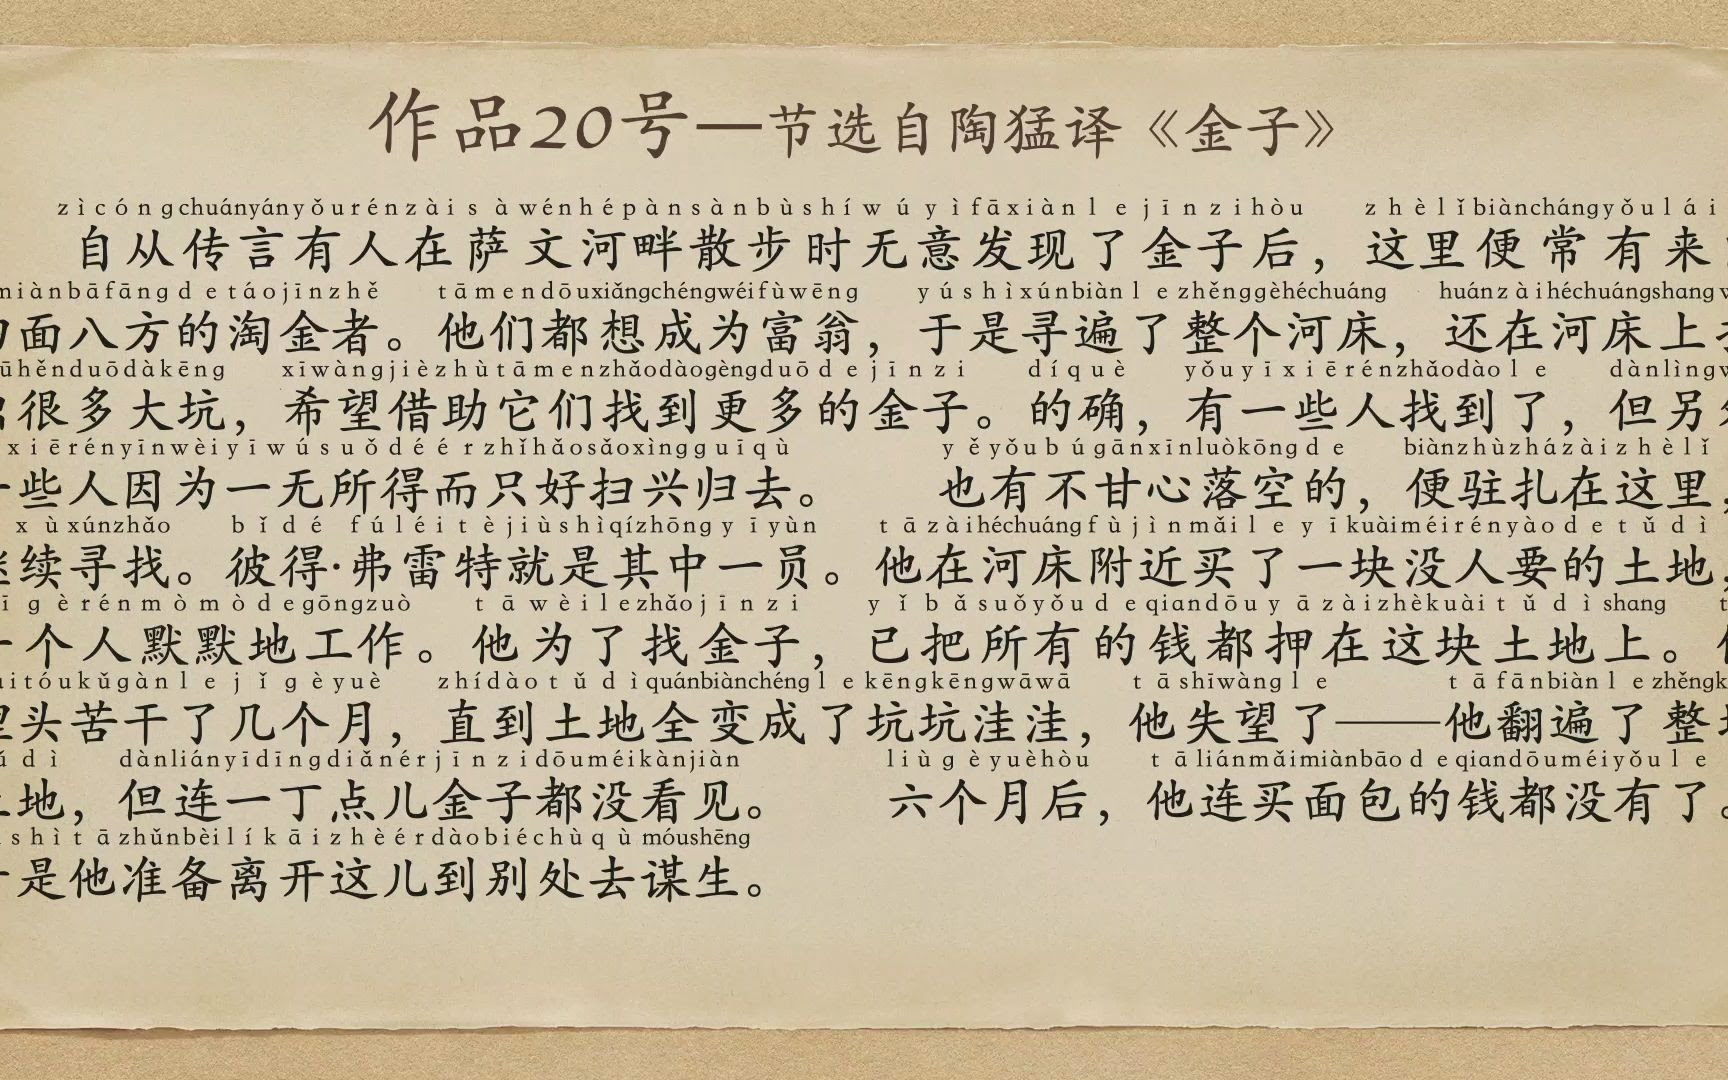 作品20号—节选自陶猛译《金子》
zìcóngchuányányǒurénzàisàwénhépànsànbùshíwúyìfāxiànlejīnzihòu zhèlǐbiànchángyǒulái
自从传言有人在萨文河畔散步时无意发现了金子后，这里便常有来
miànbāfāngdetáojīnzhě tāmendōuxiǎngchéngwéifùwēng yúshìxúnbiànlezhěnggèhéchuáng huánzàihéchuángshang
面八方的淘金者。他们都想成为富翁，于是寻遍了整个河床，还在河床上
hěnduōdàkēng xīwàngjièzhùtāmenzhǎodàogèngduōdejīnzi díquè yǒuyīxiērénzhǎodàole dànlìng
很多大坑，希望借助它们找到更多的金子。的确，有一些人找到了，但另
xiērényīnwèiyīwúsuǒdéérzhǐhǎosǎoxìngguīqù yěyǒubúgānxīnluòkōngde biànzhùzházàizhèlǐ
一些人因为一无所得而只好扫兴归去。 也有不甘心落空的，便驻扎在这里，
xùxúnzhǎo bǐdé fúléitèjiùshìqízhōngyīyùn tāzàihéchuángfùjìnmǎileyīkuàiméirényàodetǔdì
续寻找。彼得·弗雷特就是其中一员。他在河床附近买了一块没人要的土地，
gèrénmòmòdegōngzuò tāwèilezhǎojīnzi yǐbǎsuǒyǒudeqiandōuyāzàizhèkuàitǔdìshang
一个人默默地工作。他为了找金子，已把所有的钱都押在这块土地上。
tóukǔgànlejǐgèyuè zhídàotǔdìquánbiànchénglekēngkēngwāwā tāshīwàngle tāfānbiànlezhěng
头苦干了几个月，直到土地全变成了坑坑洼洼，他失望了——他翻遍了整
dì dànliányīdīngdiǎnérjīnzidōuméikànjiàn liùgèyuèhòu tāliánmǎimiànbāodeqiandōuméiyǒule
地，但连一丁点儿金子都没看见。 六个月后，他连买面包的钱都没有了。
shìtāzhǔnbèilíkāizhèérdàobiéchùqùmóushēng
是他准备离开这儿到别处去谋生。